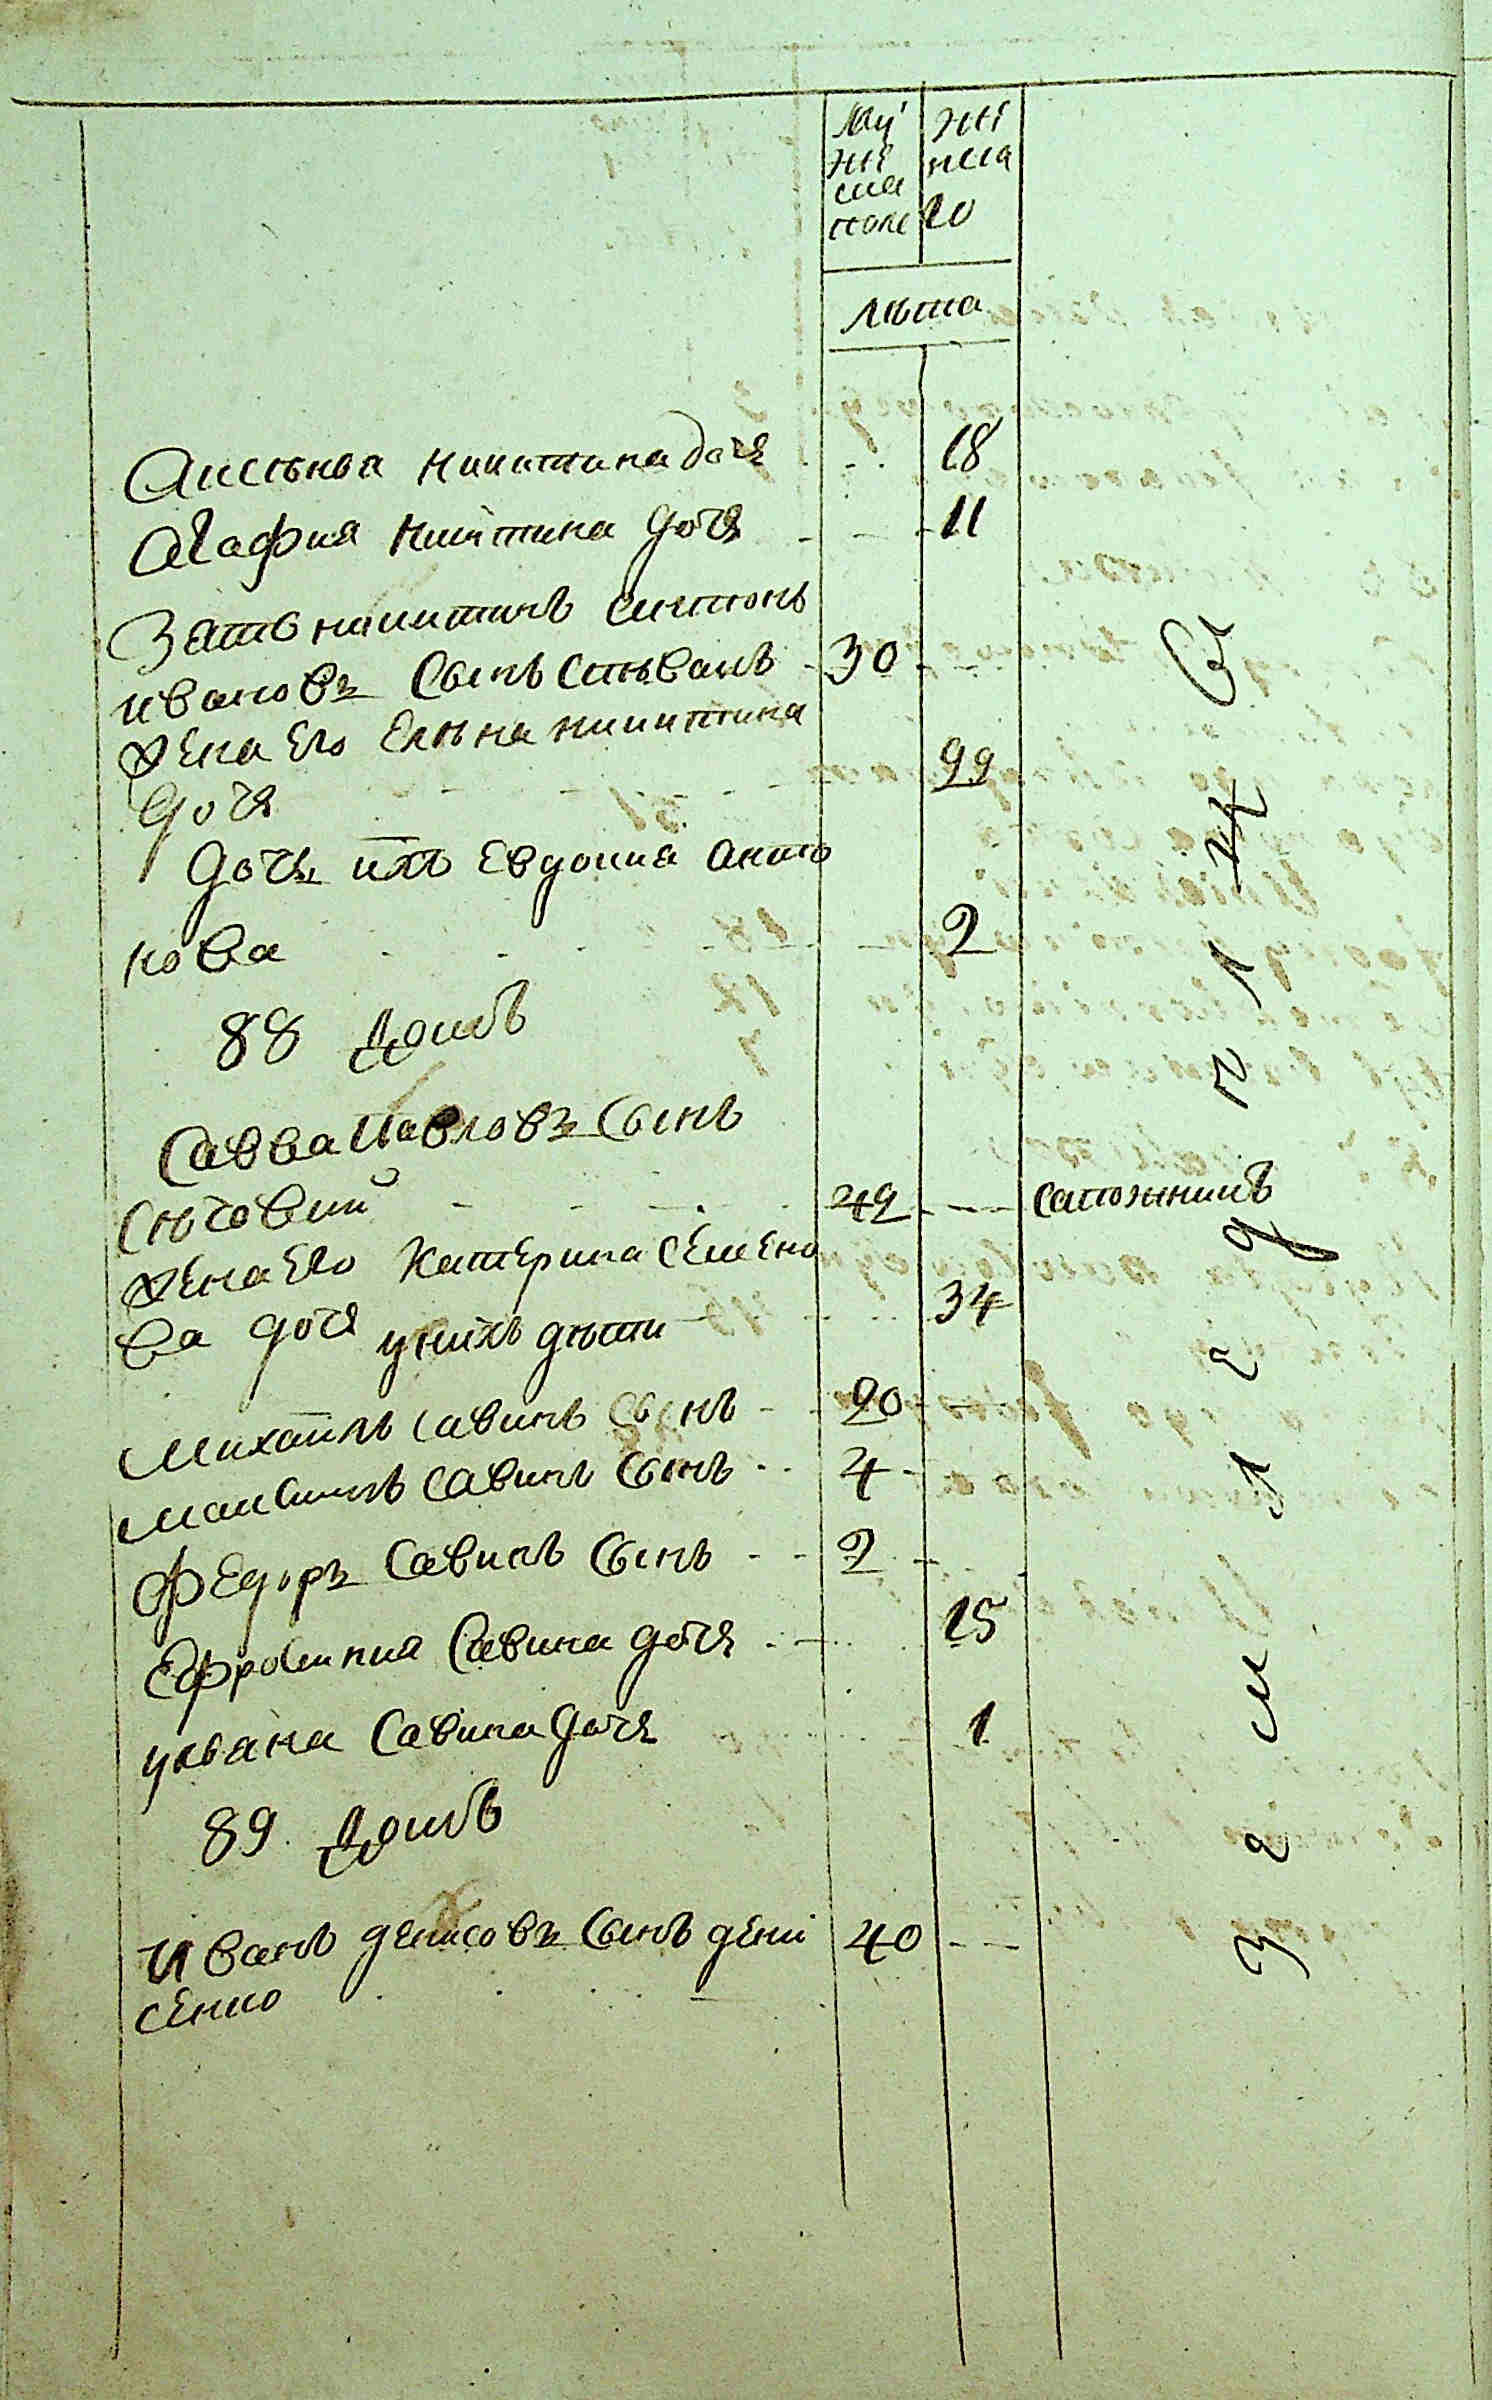 му же ска полу
же нска го
лѣта
Аксѣнѣа никитина дочя 18
Агафия никитина дочя 11
Зять никитинъ антонъ
ивановъ сынъ степанъ 30
жена его елѣна никитина
дочя 22
дочь ихъ евдокия анто
нова 2
88 домъ
савва павловъ сынъ
сѣчовий 42 сапожникъ
жена его катерина семено
ва дочя 34
у нихъ дѣти
михаилъ савинъ сынъ 20
максимъ савинъ сынъ 4
федоръ савинъ сынъ 2
ефросиния савина дочя 15
уляна савина дочя 1
89 домъ
иванъ денисовъ сынъ дени 40
сенко